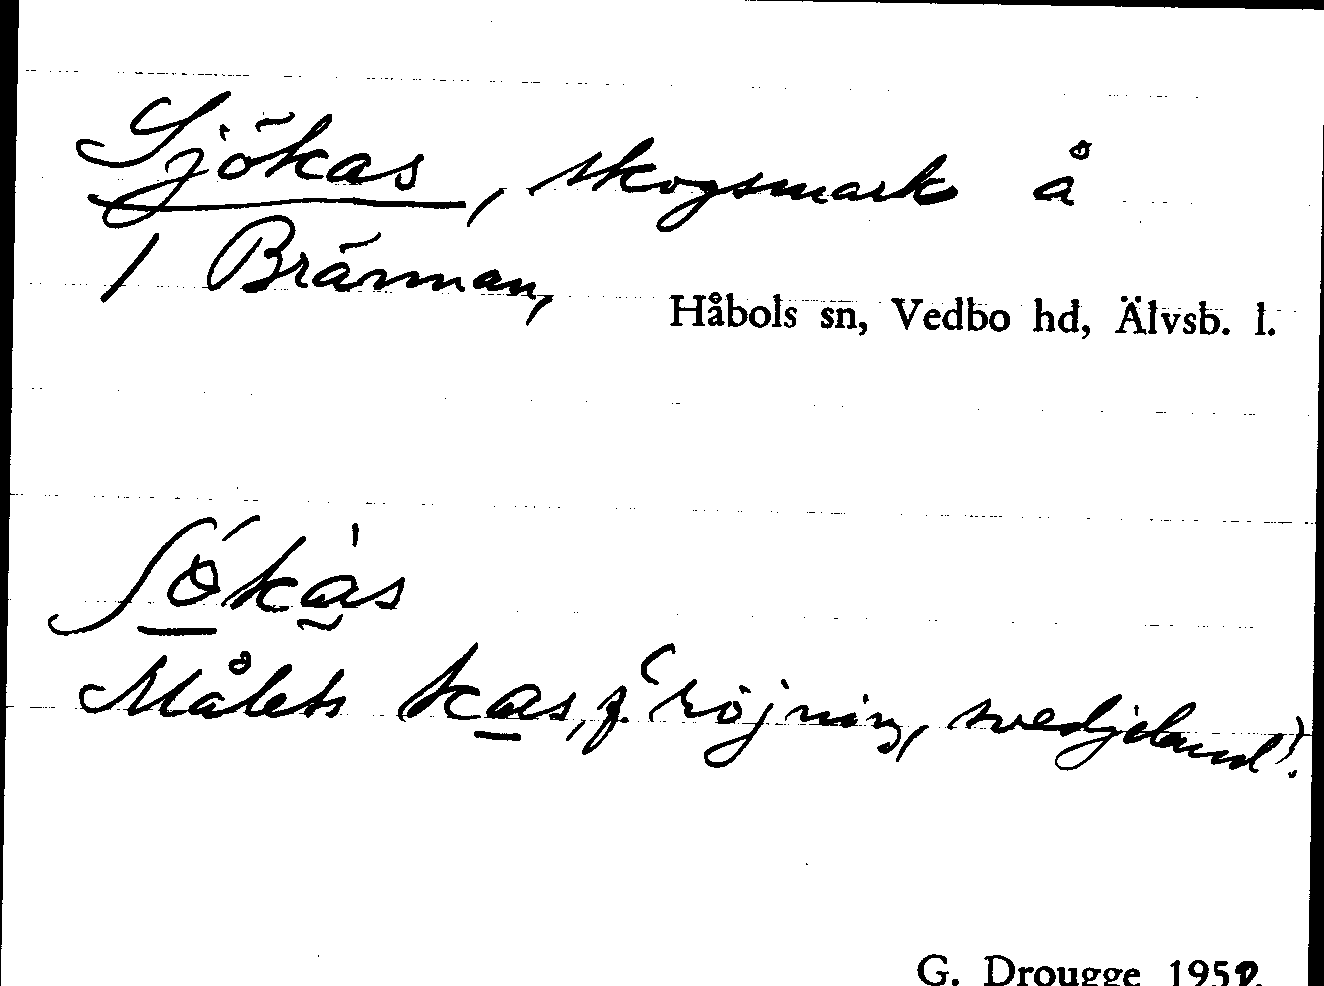 Sjökas, skogsmark å
1 Brännan,
Håbols sn, Vedbo hd, Älvsb. l.
Målets kas, f. 'röjning, svedjeland'.
G. Drougge 1952.